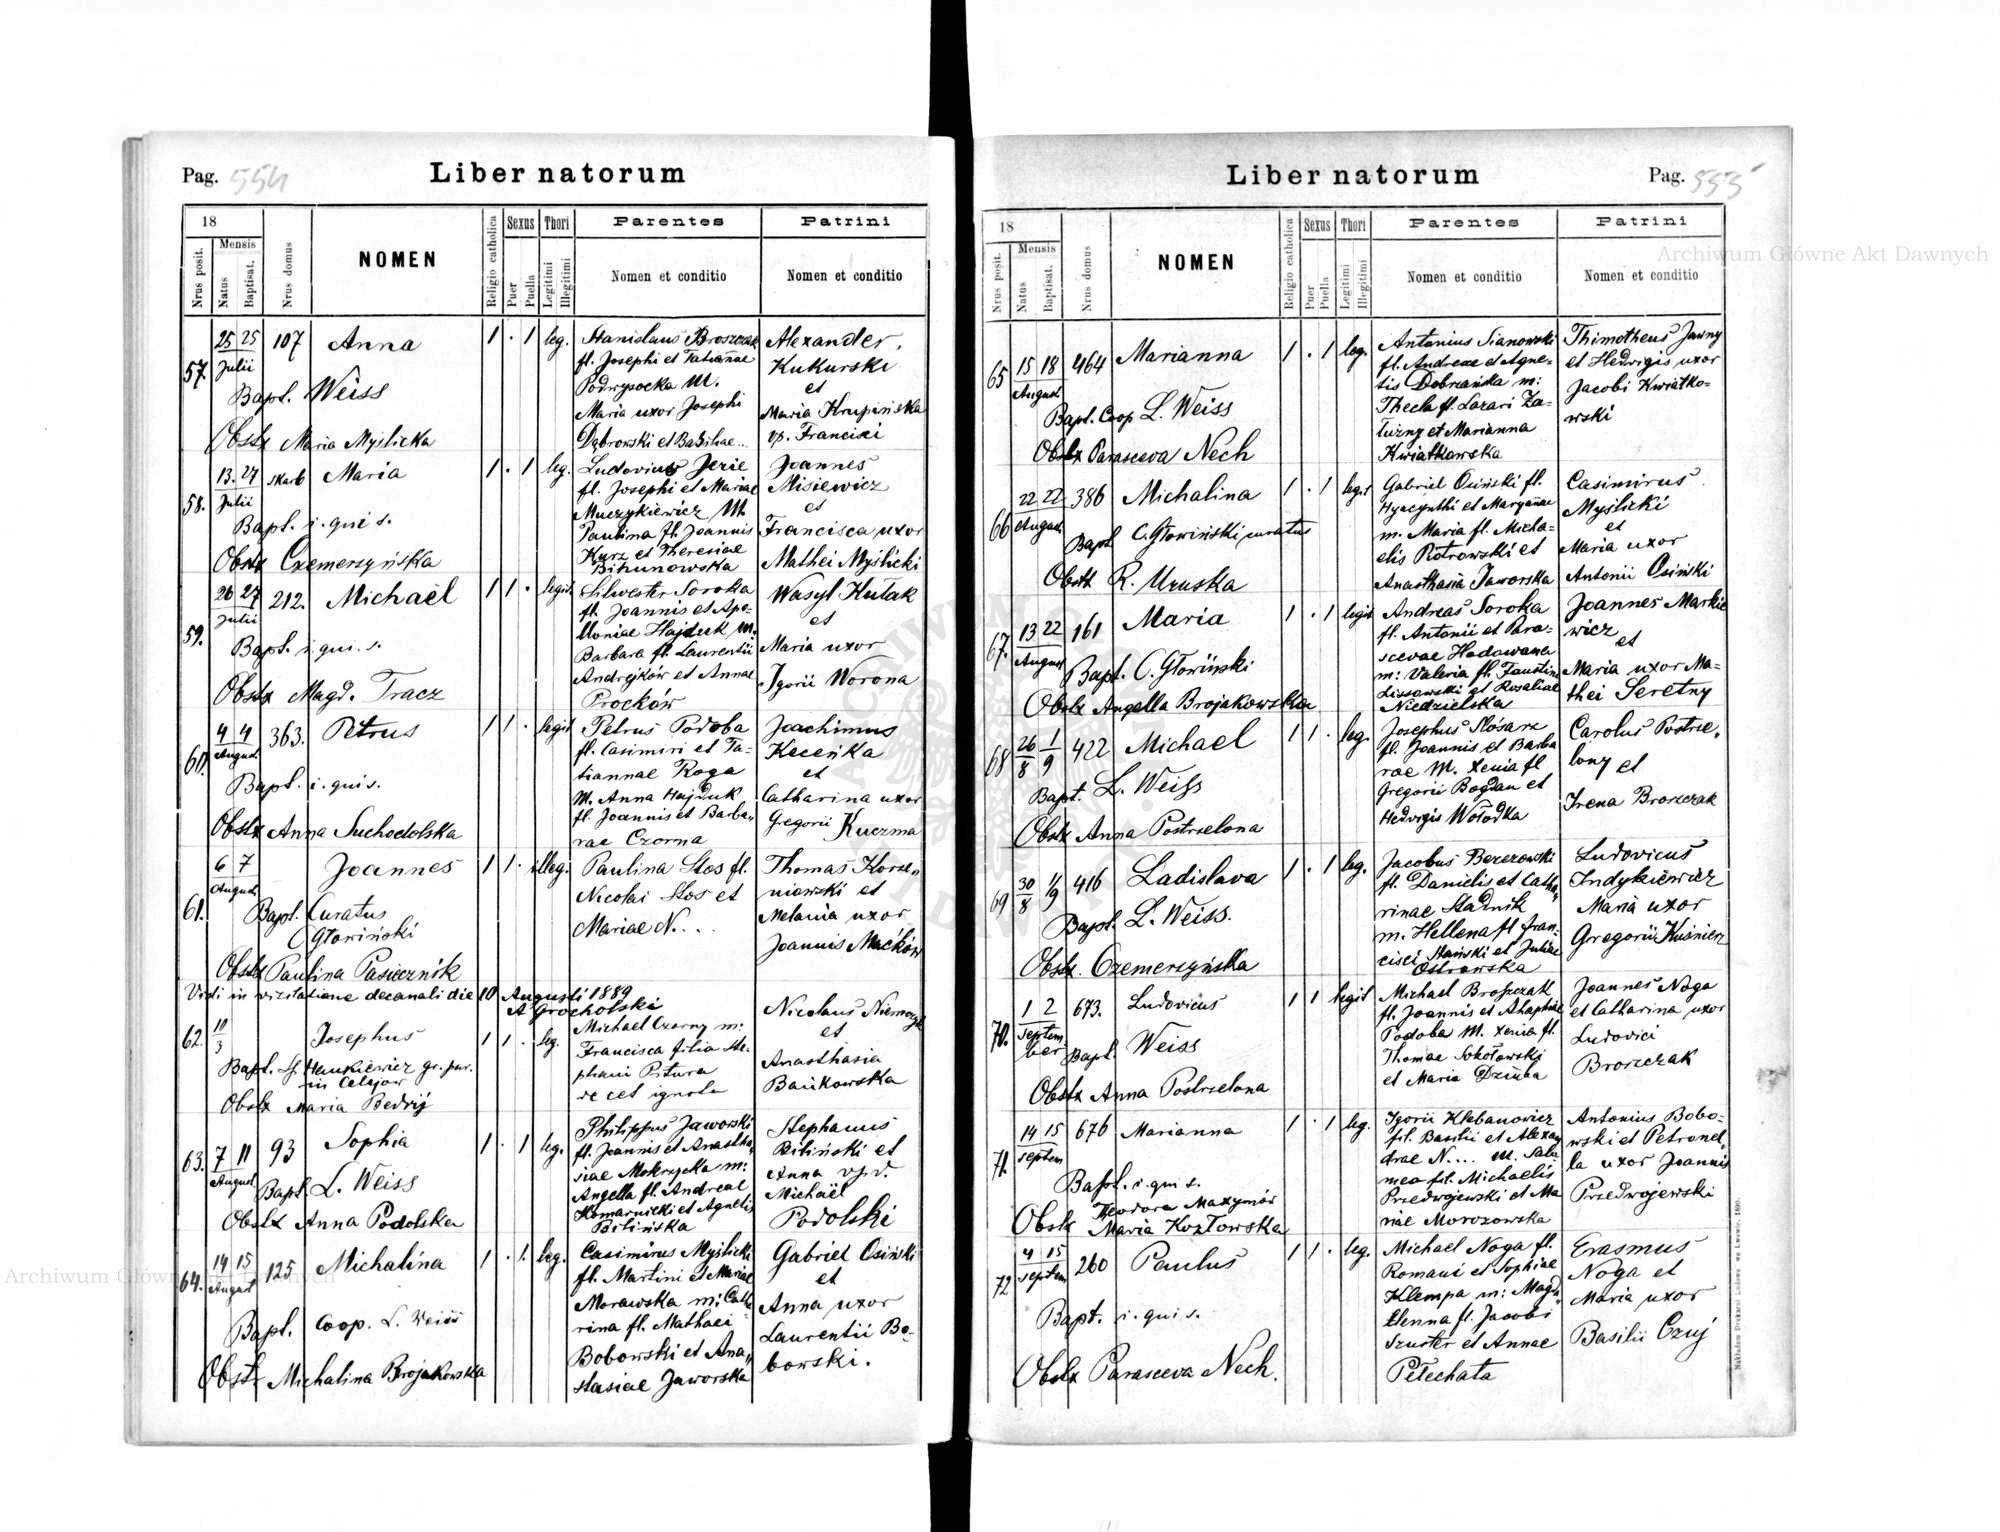 Pag. 554
Liber natorum
18
Mensis
Nrus posit.
Natus
Baptisat.
Nrus domus
NOMEN
Religio catholica
Sexus
Puer
Puella
Thori
Legitimi
Illegitimi
Parentes
Nomen et conditio
Patrini
Nomen et conditio
57. 25 25 Julii 107 Anna 1 . 1 leg.
Bapt. Weiss
Obstx Maria Myślicka
Stanislaus Broszczak
fl. Josephi et Tatiannae
Podwysocka M.
Maria uxor Josephi
Dąbrowski et Basiliae
Alexander
Kukurski
et
Maria Krupińska
vp. Francisci
58. 13. 27 Julii skarb Maria 1 . 1 leg.
Bapt. i. qui s.
Obstx Czemerzyńska
Ludovicus Jerie
fl. Josephi et Mariae
Muczykiewicz M.
Paulina fl. Joannis
Kurz et Theresiae
Bihunowska
Joannes
Misiewicz
et
Francisca uxor
Mathei Myślicki
59. 26 27 Julii 212. Michael 1 1 . legit.
Bapt. i. qui. s.
Obstx Magd. Tracz
Silvester Soroka
fl. Joannis et Apo-
lloniae Hajduk M.
Barbara fl. Laurentii
Andrejków et Annae
Prockow
Wasyl Kułak
et
Maria uxor
Igorii Worona
60. 4 4 August 363. Petrus 1 1 . legit
Bapt. i. qui s.
Obstx Anna Suchodolska
Petrus Podoba
fl. Casimiri et Ta-
tiannae Roga
M. Anna Hajduk
fl. Joannis et Barba„
rae Czorma
Joachimus
Keceńka
et
Catharina uxor
Gregorii Kuczma
61. 6 7 August Joannes 1 1 . illeg.
Bapt. Curatus
Głowiński
Obstx Paulina Pasiecznik
Paulina Stos fl.
Nicolai Stos et
Mariae N. . . .
Thomas Korze„
niowski et
Melania uxor
Joannis Maćków
Vidi in visitatione decanali die 10 Augusti 1889
A Grocholski
62. 10 3 Josephus 1 1 . leg.
Bapt. Hankiewicz gr. par.
in Celejow
Obstx Maria Bedrij
Michael Czorny m:
Francisca filia Ste-
phani Pitura
de cet ignota
Nicolaus Niemczyk
et
Anasthasia
Bańkowska
63. 7 11 August 93 Sophia 1 . 1 leg.
Bapt. L. Weiss
Obstx Anna Podolska
Philippus Jaworski
fl. Joannis et Anastha„
siae Mokrzycka m:
Angella fl. Andreae
Komarnicki et Agnetis
Bilińska
Stephanus
Biliński et
Anna
Michaël
Podolski
64. 14 15 August 125 Michalina 1 . 1. leg.
Bapt. Coop. L. Weiss
Obstx Michalina Brojakowska
Casimirus Myślicki
fl. Martini et Mariae
Morawska m: Catha
rina fl. Mathaei
Bobowski et Ana„
stasiae Jaworska
Gabriel Osiński
et
Anna uxor
Laurentii Bo-
bowski.
Liber natorum
Pag. 555
18
Mensis
Nrus posit.
Natus
Baptisat.
Nrus domus
NOMEN
Religio catholica
Sexus
Puer
Puella
Thori
Legitimi
Illegitimi
Parentes
Nomen et conditio
Patrini
Nomen et conditio
65 15 18 August 464 Marianna 1 . 1 leg.
Bapt. Coop L. Weiss
Obstx Parasceva Nech
Antonius Sianowski
fl. Andreae et Agne-
tis Dobrzańska m:
Thecla fl. Lazari Za-
łużny et Marianna
Kwiatkowska
Thimotheus Jawny
et Hedwigis uxor
Jacobi Kwiatko-
wski
66 22 22 August 386 Michalina 1 . 1 legit
Bapt C. Głowiński curatus
Obstx R. Uruska
Gabriel Osiński fl.
Hyacynthi et Maryannae
m. Maria fl. Micha-
elis Piotrowski et
Anasthasia Jaworska
Casimirus
Myślicki
et
Maria uxor
Antonii Osiński
67. 13 22 August 161 Maria 1 . 1 legit
Bapt. C. Głowiński
Obstx Angella Brojakowska
Andreas Soroka
fl. Antonii et Para-
scevae Hodowana
m: Valeria fl. Faustini
Lissowski et Rosaliae
Niedzielska
Joannes Markie
wicz
et
Maria uxor Ma-
thei Seretny
68 26 8 1 9 422 Michael 1 1 . leg.
Bapt. L. Weiss
Obstx Anna Postrzelona
Josephus Slósarz
fl. Joannis et Barba
rae M. Xenia fl
Gregorii Bogdan et
Hedvigis Wołodka
Carolus Postrze„
lony et
Irena Broszczak
69 30 8 1 9 416 Ladislava 1 . 1 leg.
Bapt. L. Weiss.
Obstx. Czemerzyńska
Jacobus Bezezowski
fl. Danielis et Catha„
rinae Stadnik
m. Hellena fl Fran-
cisci Stański et Juliae
Ostrowska
Ludovicus
Indykiewicz
Maria uxor
Gregorii Kuśnierz
70. 1 2 September 673. Ludovicus 1 1 legit
Bapt. Weiss
Obstx Anna Postrzelona
Michael Broszczak
fl. Joannis et Ahaphiae
Podoba M. Xenia fl.
Thomae Sokołowski
et Maria Dziuba
Joannes Noga
et Catharina uxor
Ludovici
Broszczak
71. 14 15 septem 676 Marianna 1 . 1 leg.
Bapt. i. qui s.
Obstx Theodora Maxymów
Maria Kozłowska
Igorii Klebanowicz
fil. Basilii et Alexan
drae N.... M. Salo
mea fil. Michaelis
Przedwojewski et Ma
riae Morozowska
Antonius Bobo-
wski et Petronel„
la uxor Joannis
Przedwojewski
72 4 15 septem 260 Paulus 1 1 . leg.
Bapt. i. qui s.
Obstx Parasceva Nech.
Michael Noga fl.
Romani et Sophiae
Klempa m: Magd„
lenna fl. Jacobi
Szuster et Annae
Petechata
Erasmus
Noga et
Maria uxor
Basilii Czuj
Archiwum Główne Akt Dawnych
Archiwum Główne Akt Dawnych